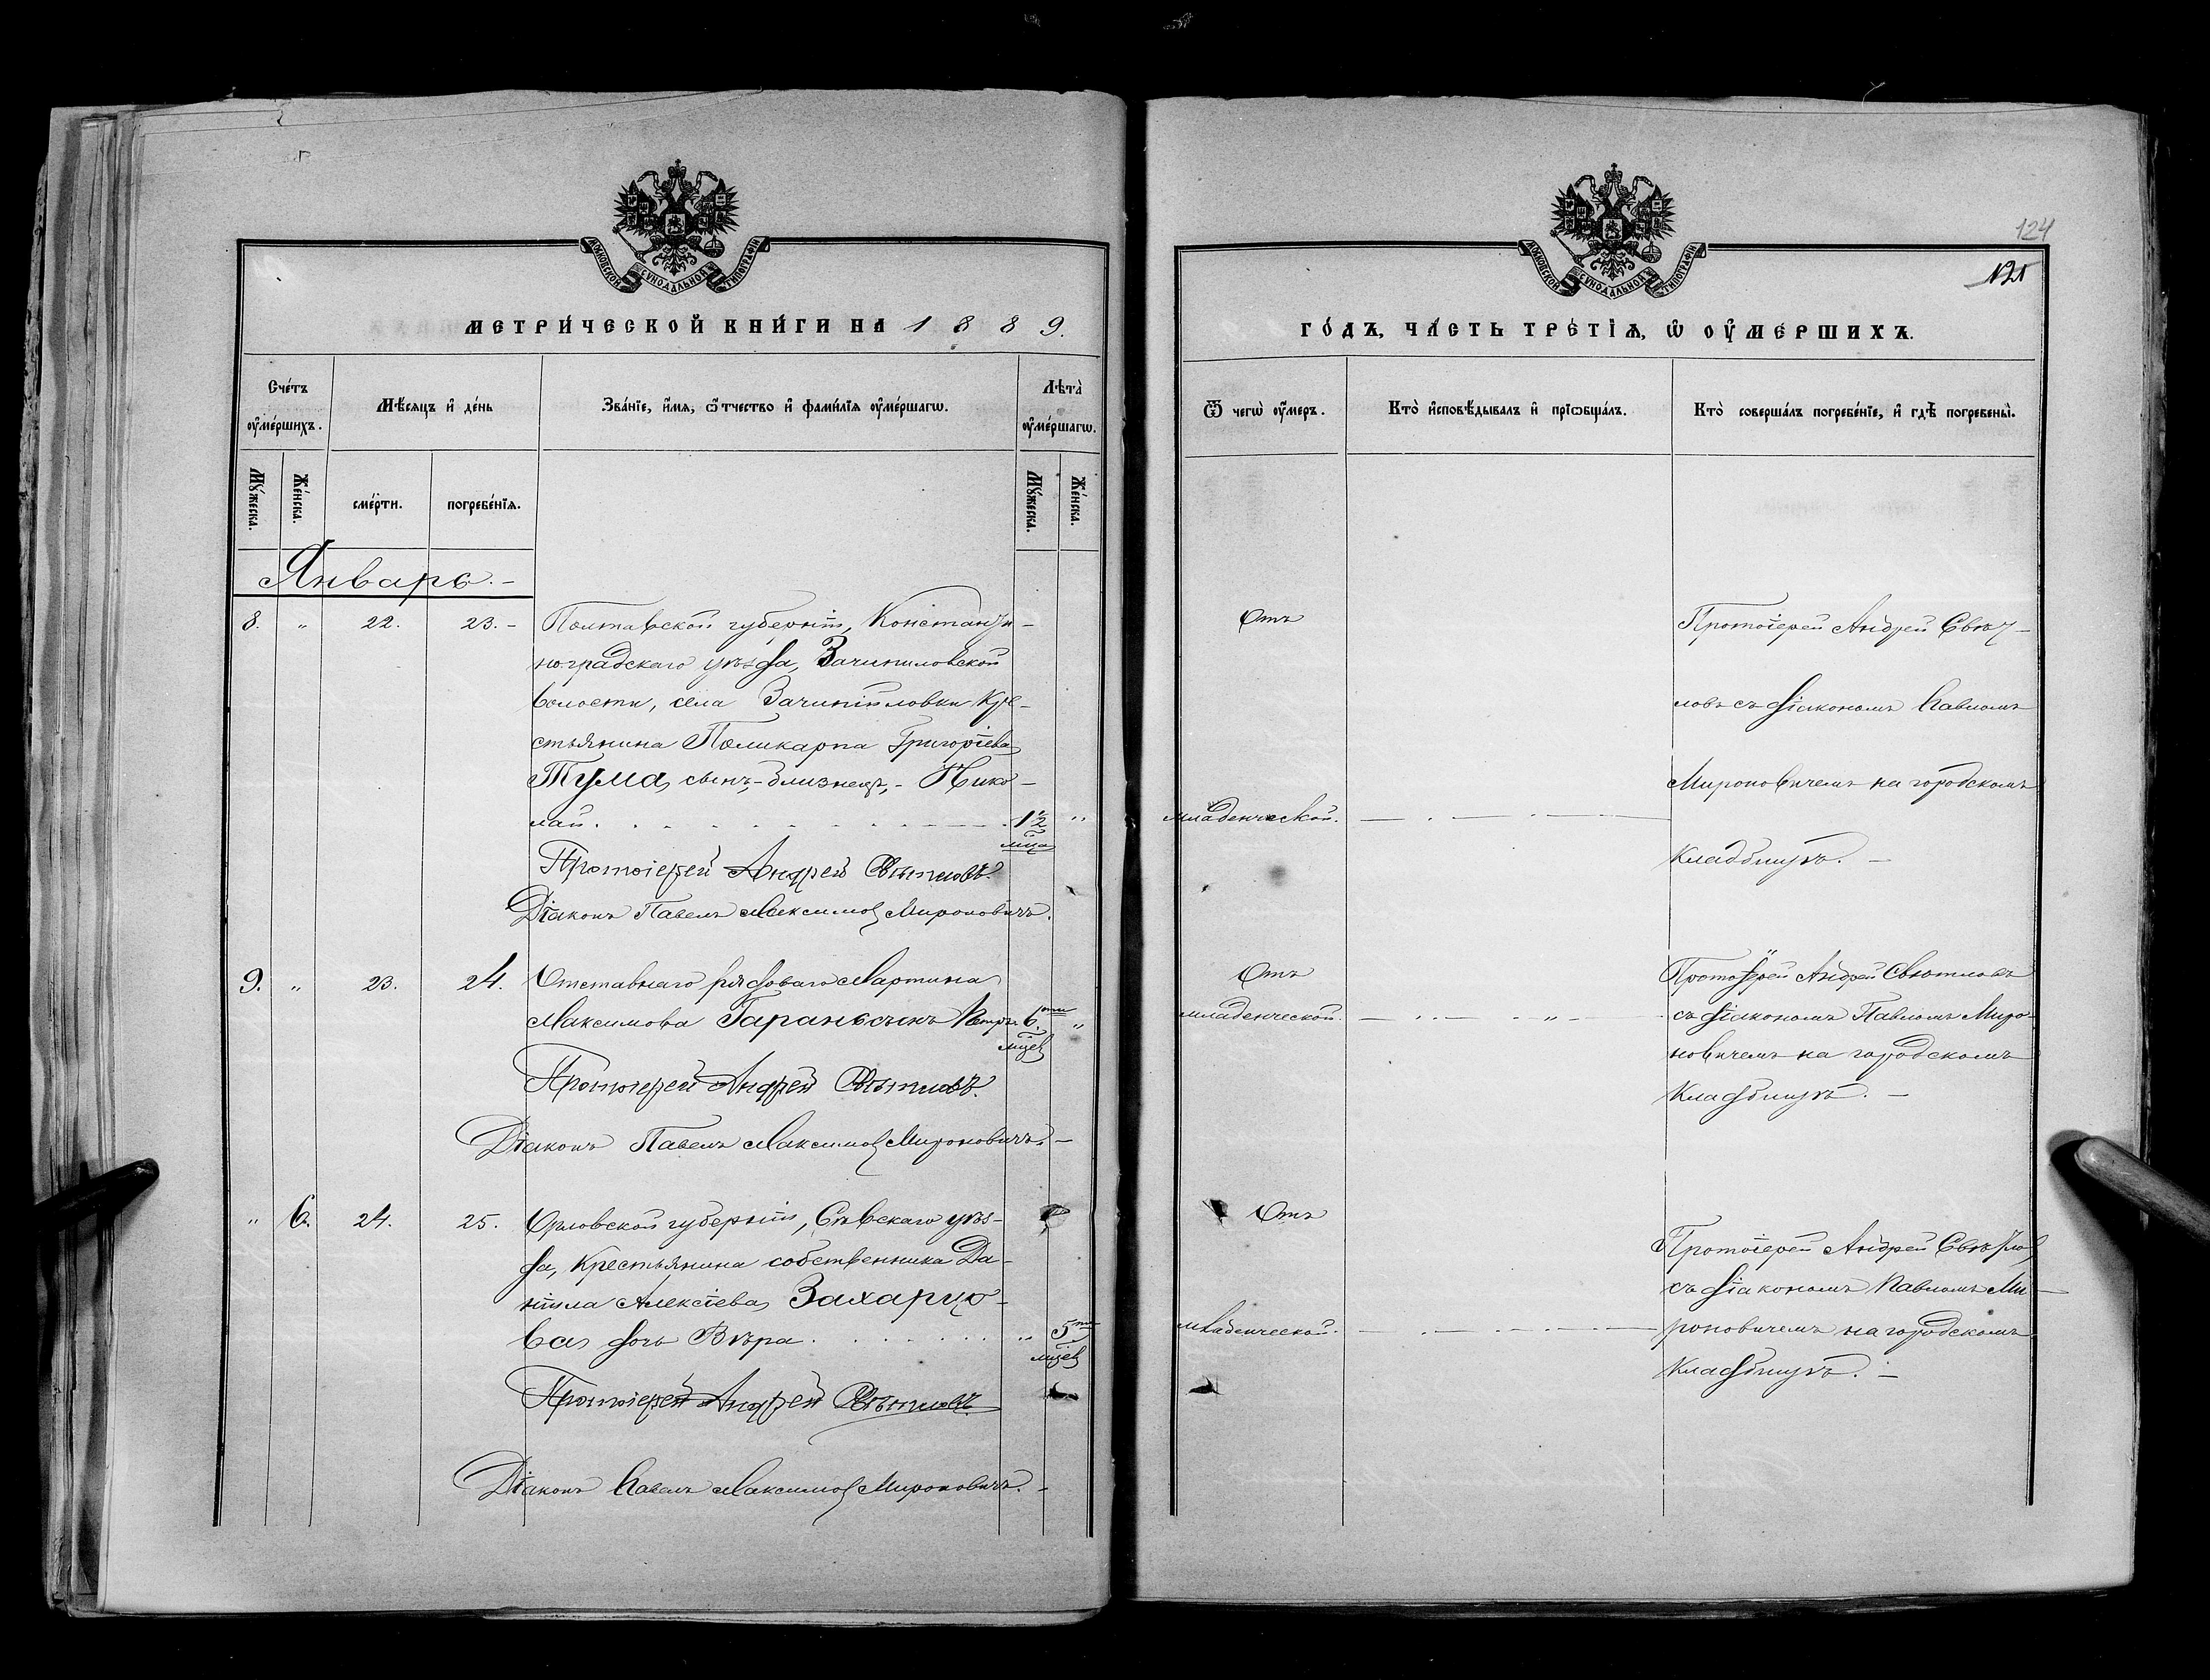 124
121
МОСКОВСКОЙ СѴНОДАЛЬНОЙ ТИПОГРАФІИ
МЕТРИ́ЧЕСКОЙ КНИ́ГИ НА 1889.
Сче́тъ оу҆ме́ршихъ.
Мѣ́сяцъ и҆ де́нь
Зва́нїе, и҆́мѧ, ѻ҆́тчество и҆ фами́лїѧ оу҆ме́ршагѡ.
Лѣ́та оу҆ме́ршагѡ.
Му́жеска.
Же́нска.
сме́рти.
погребе́нїѧ.
Му́жеска.
Же́нска.
Январь. -
8. " 22. 23. - Полтавской губерніи, Константи-
ноградскаго уѣзда, Зачипиловской
волости, села Зачипиловки Кре-
стьянина Поликарпа Григоріева
Тума, сынъ,-близнецъ,- Нико-
лай. 1½ "
м͠ца
Протоіерей Андрей Свѣтловъ.
Діаконъ Павелъ Максимов Мироновичъ.
9. " 23. 24. Отставнаго рядоваго Мартина
Максимова Гарань сынъ Петръ 6.ти "
мцев
Протоіерей Андрей Свѣтловъ.
Діаконъ Павелъ Максимов Мироновичъ. -
" 6. 24. 25. Орловской губерніи, Сѣвскаго уѣз-
да, Крестьянина собственника Да-
ніила Алексіева Захарцо-
ва дочь Вѣра " 5ти
мцев
Протоіерей Андрей Свѣтловъ
Діаконъ Павелъ Максимов Мироновичъ. -
МОСКОВСКОЙ СѴНОДАЛЬНОЙ ТИПОГРАФІИ
ГО́ДЪ, ЧА́СТЬ ТРЕ́ТЇѦ, Ѡ҆ ОУ҆МЕ́РШИХЪ.
Ѿ чегѡ̀ оу҆́меръ.
Кто̀ и҆сповѣ́дывалъ и҆ прїѡбща́лъ.
Кто̀ соверша́лъ погребе́нїе, и҆ гдѣ̀ погребены̀.
Отъ
младенческой.
Протоіерей Андрей Свѣт-
ловъ съ діакономъ Павломъ
Мироновичемъ на городскомъ
Кладбищѣ. -
Отъ
младенческой. "
Протоіерей Андрей Свѣтловъ
съ діакономъ Павломъ Миро-
новичемъ на городскомъ
Кладбищѣ. -
Отъ
младенческой.
Протоіерей Андрей Свѣтлов
съ діакономъ Павломъ Ми-
роновичемъ на городскомъ
Кладбищѣ. -